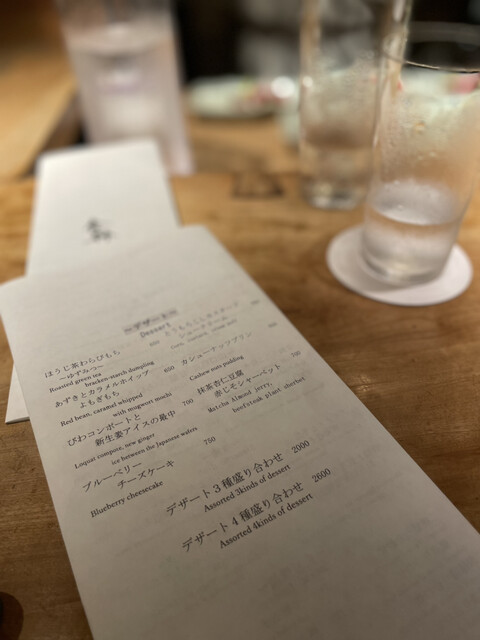 〜デザート〜
Dessert
ほうじ茶わらびもち
〜ゆずみつ〜
Roasted green tea
bracken-starch dumpling
あずきとカラメルホイップ 650
よもぎもち
Red bean, caramel whipped
with mugwort mochi
びわコンポートと 700
新生姜アイスの最中
Loquat compote, new ginger
ice between the Japanese wafers
ブルーベリー 750
チーズケーキ
Blueberry cheesecake
とうもろこしとカスタード
シュークリーム
Corn, custard, cream puff
カシューナッツプリン
Cashew nuts pudding
抹茶杏仁豆腐
赤じそシャーベット
Matcha Almond jerry,
beefsteak plant sherbet
デザート3種盛り合わせ 2000
Assorted 3kinds of dessert
デザート4種盛り合わせ 2600
Assorted 4kinds of dessert